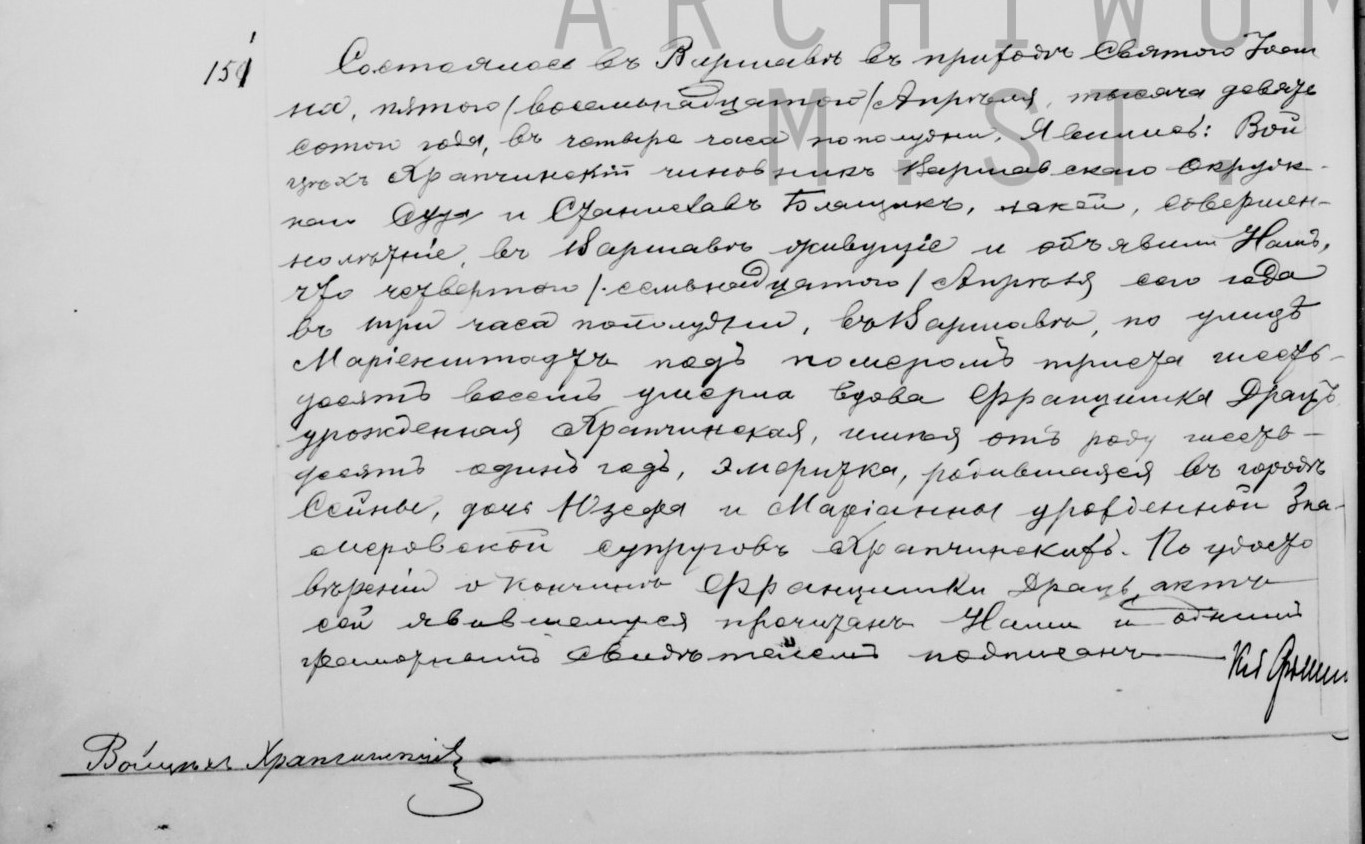 ARCHIWUM
M. ST.
151
Состоялось въ Варшавѣ въ приходѣ Святого Іоан
на, пятого /восемьнадцатого/ Апрѣля, тысяча девять
сотого года, въ четыре часа пополудни. Явились: Вой
цѣхъ Храпчинскій чиновникъ Варшавскаго Окруж-
наго Суда и Станиславъ Блащикъ, лакей, совершен-
нолѣтніе, въ Варшавѣ живущіе и объявили Намъ,
что четвертого /семьнадцатого/ Апрѣля сего года
въ три часа пополудни, въ Варшавѣ, по улицѣ
Маріенштадтъ подъ номеромъ триста шесть-
десятъ восемь умерла вдова Францишка Драцъ
урожденная Храпчинская, имѣя отъ роду шесть-
десятъ одинъ годъ, эмеритка, родившаяся въ городѣ
Сейны, дочь Юзефа и Маріанны урожденной Зна-
меровской супруговъ Храпчинскихъ. По удосто
вѣреніи о кончинѣ Францишки Драцъ, актъ
сей явившемуся прочитанъ Нами и однимъ
грамотнымъ свидѣтелемъ подписанъ
Войцѣхъ Храпчинскій